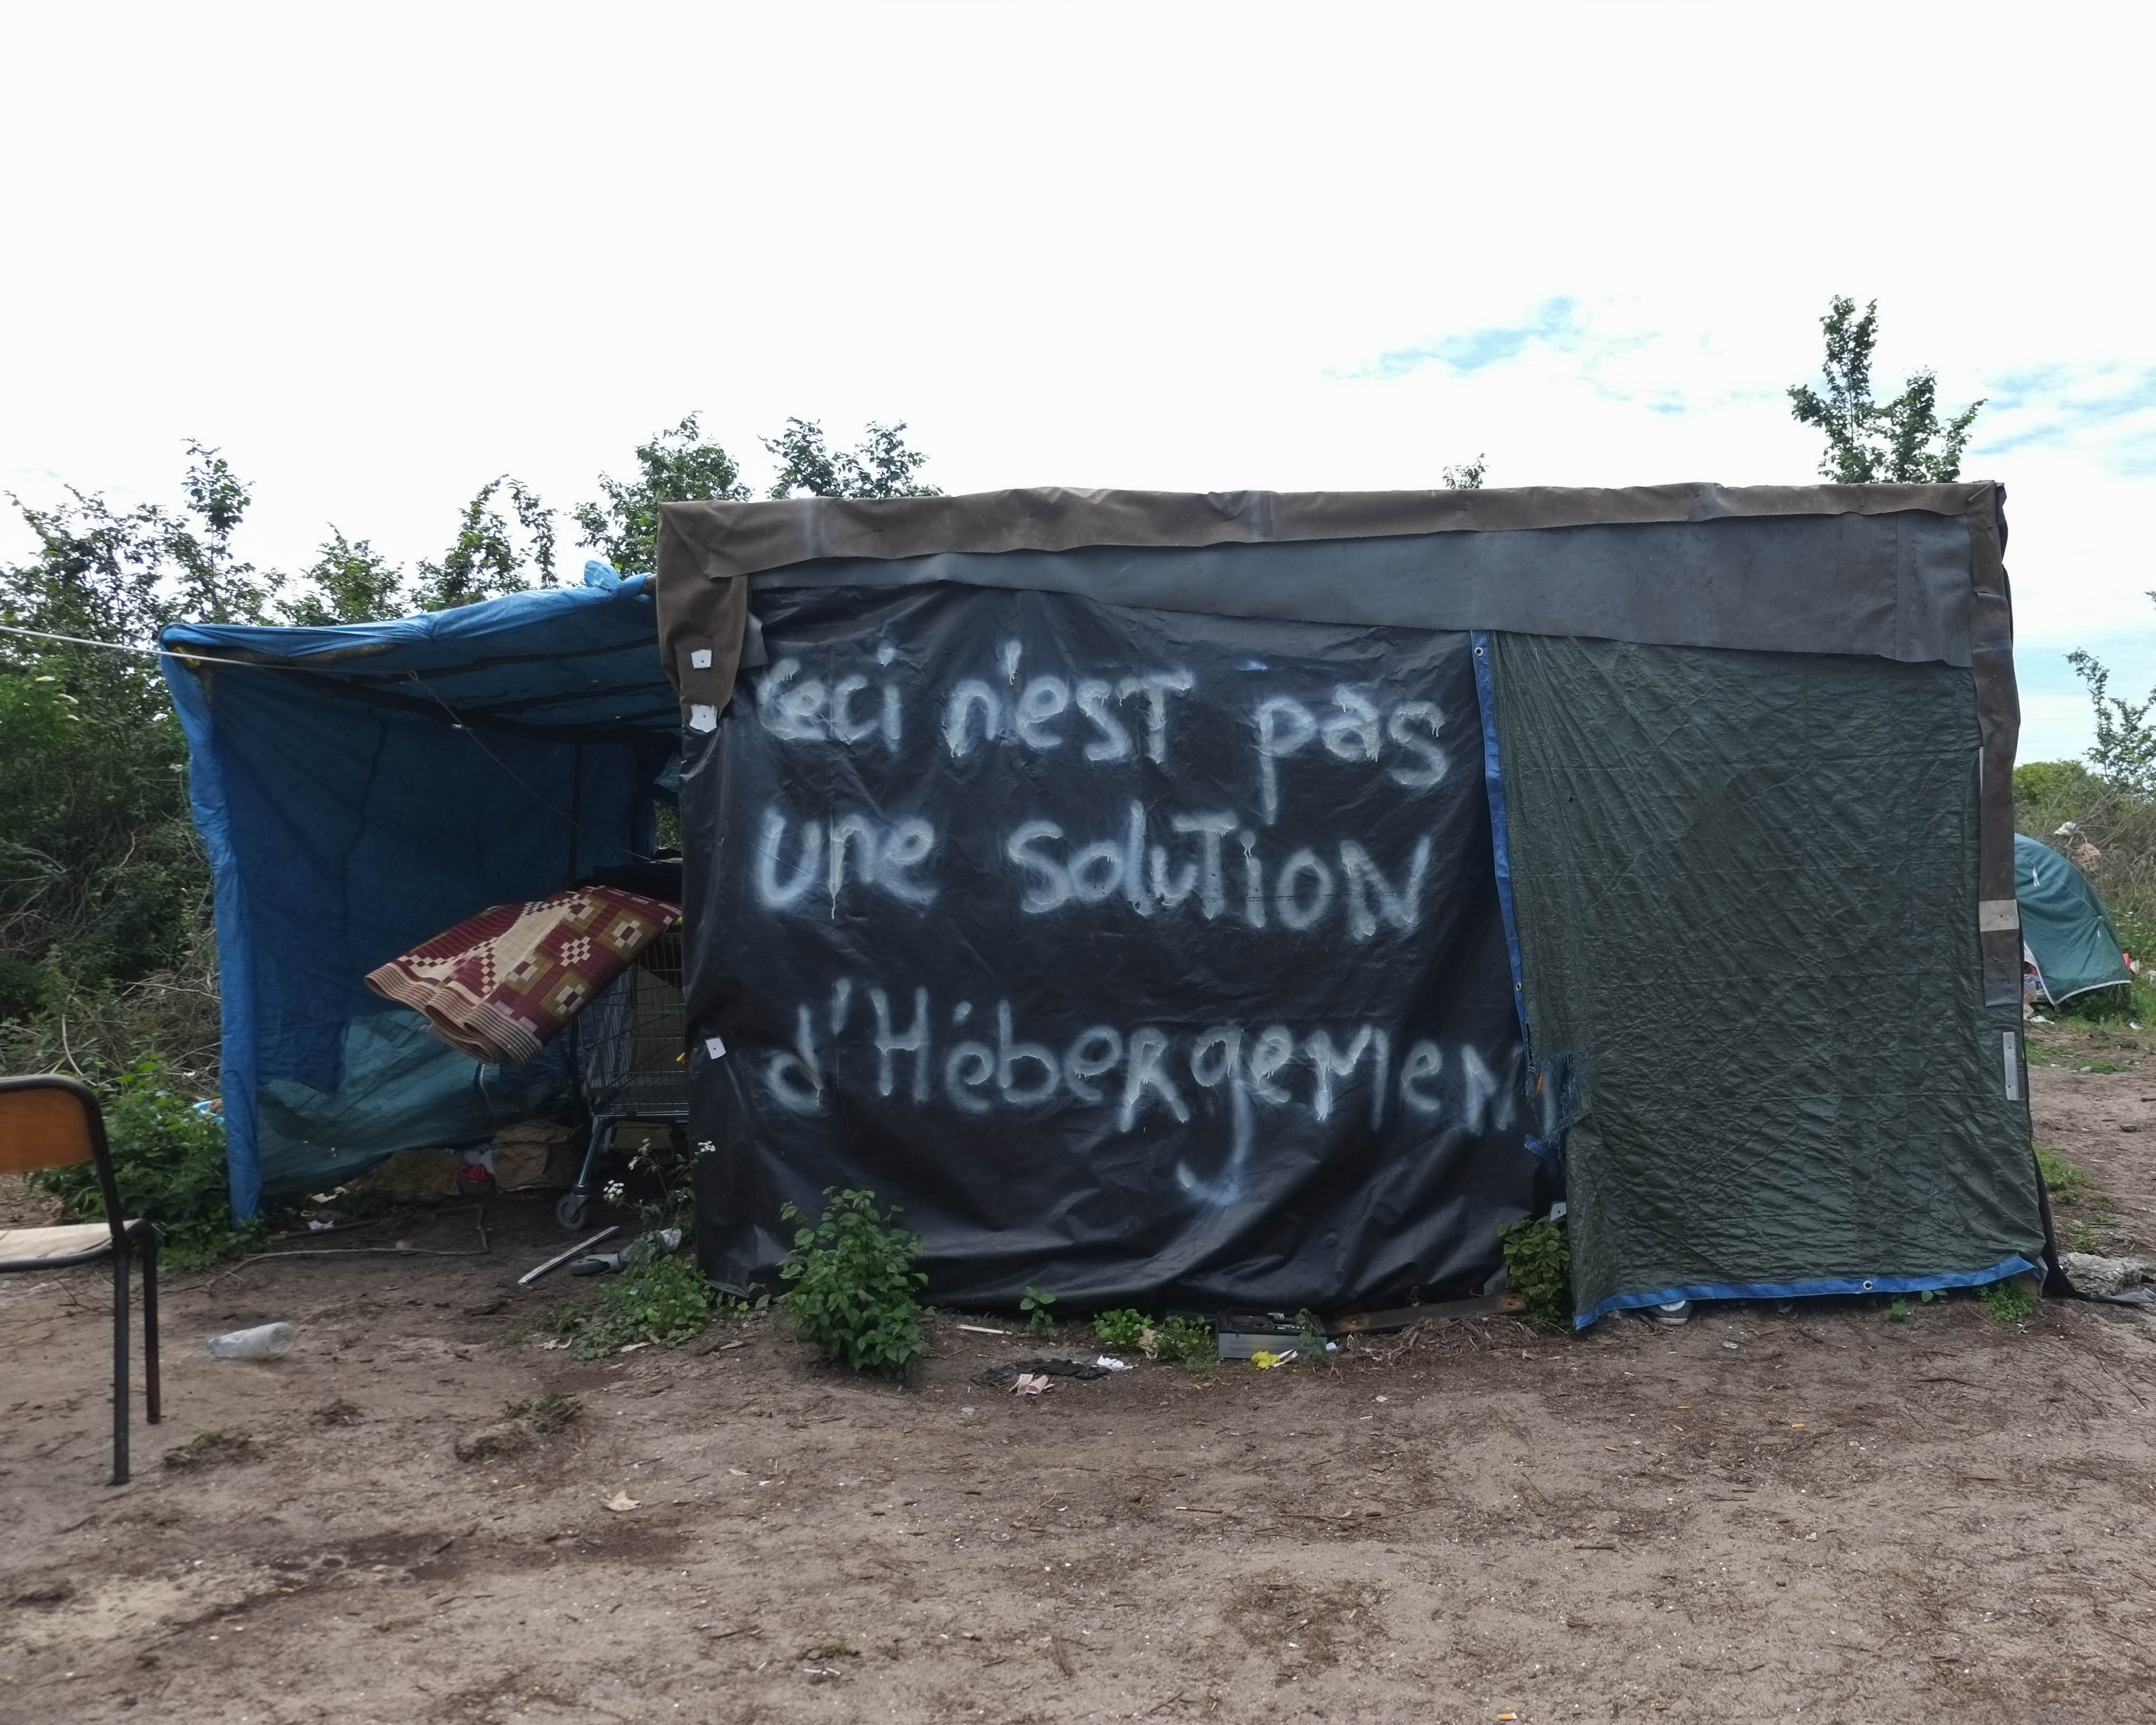 Ceci n'est pas
une solution
d'Hébergement